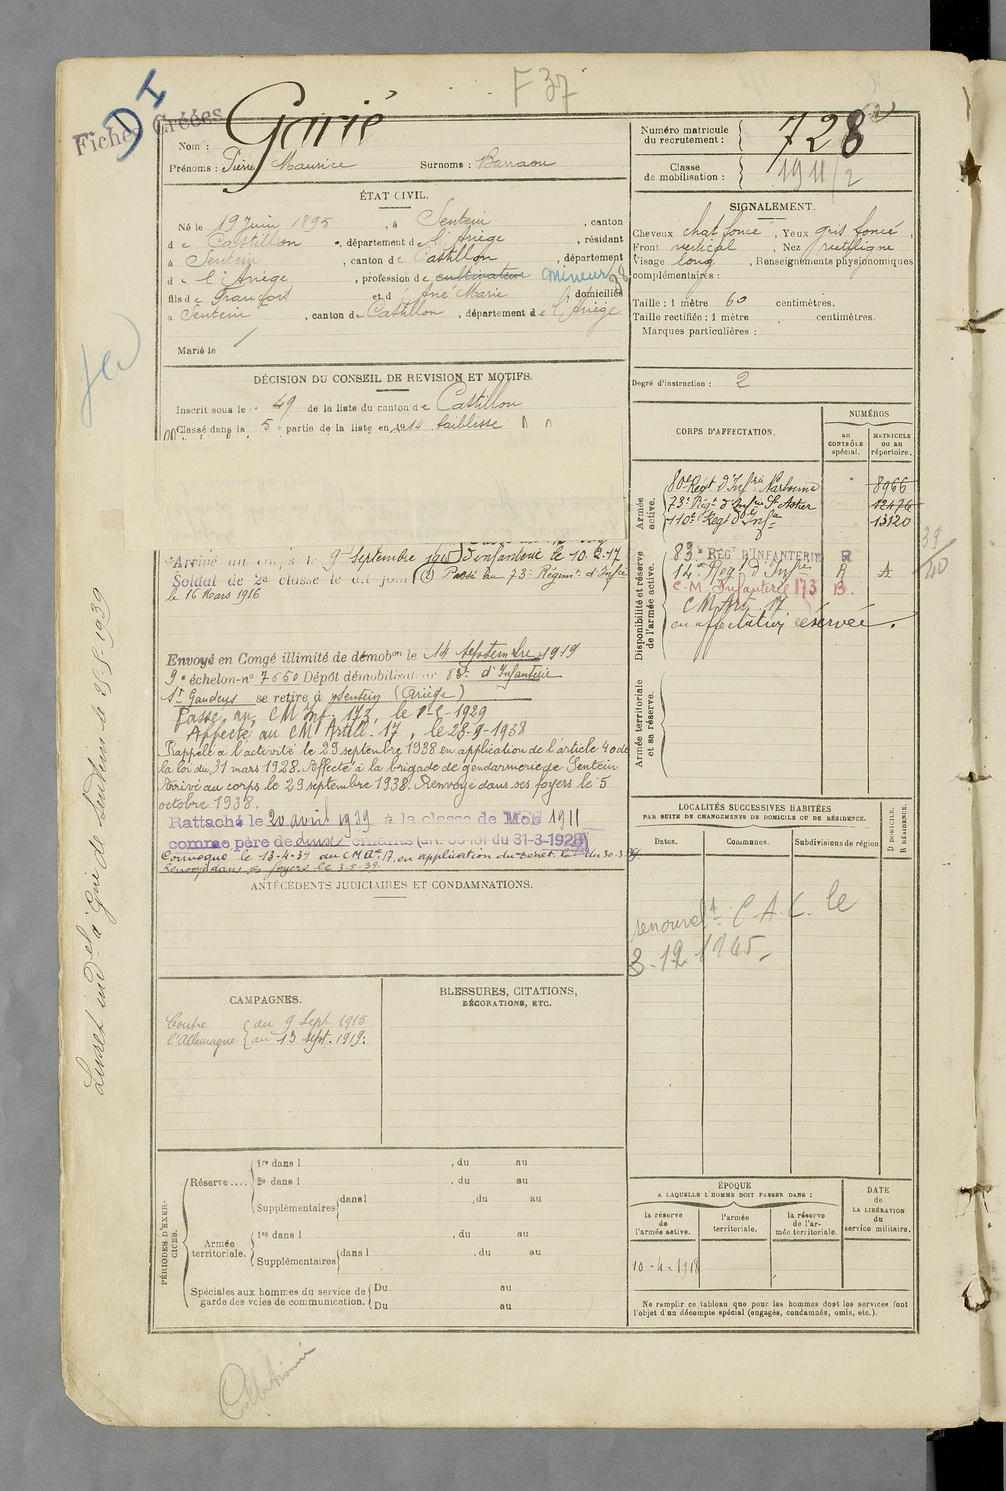 F 37
D I
Fiches Créées
Nom : Garié
Prénoms : Pierre Maurice Surnoms : Barraou
Numéro matricule du recrutement : 728
Classe de mobilisation : 1911/2
ÉTAT CIVIL.
Né le 19 Juin 1895, à Sentein, canton
de Castillon, département de l'Ariège, résidant
à Sentein, canton de Castillon, département
de l'Ariège, profession de cultivateur mineur
fils de François et d' Marie, domiciliés
à Sentein, canton de Castillon, département de l'Ariège
Marié le
SIGNALEMENT.
Cheveux chat foncé, Yeux gris foncé,
Front vertical, Nez rectiligne
Visage long, Renseignements physionomiques
complémentaires :
Taille : 1 mètre 60 centimètres.
Taille rectifiée : 1 mètre , centimètres.
Marques particulières :
Degré d'instruction : 2
DÉCISION DU CONSEIL DE REVISION ET MOTIFS.
Inscrit sous le n° 49 de la liste du canton de Castillon
Classé dans la 5e partie de la liste en 1914. faiblesse
Arrivé au corps le 9 Septembre 1915 d'infanterie le 10.2.17
Soldat de 2e classe le dit jour (1) Passé au 73e Régimt d'Infie
le 16 Mars 1916
Envoyé en Congé illimité de démobon le 14 septembre 1919
9e échelon-n° 7650 Dépôt démobilisateur 83e d'Infanterie
St Gaudens se retire à Sentein (Ariège)
Passé au CM Inf. 173, le 1-2-1929
Affecté au CM Artil. 17, le 28-9-1938
Rappelé à l'activité le 29 septembre 1938 en application de l'article 40 de
la loi du 31 mars 1928. Affecté à la brigade de gendarmerie de Sentein
Arrivé au corps le 29 septembre 1938. Renvoyé dans ses foyers le 5
octobre 1938.
Rattaché le 20 avril 1939 à la classe de Mob 1911
comme père de deux enfants (art. 58 loi du 31-3-1928)
Convoqué le 13-4-39 au CM Art 17, en application du décret loi du 30.3.39
Renvoyé dans ses foyers le 3-5-39
ANTÉCÉDENTS JUDICIAIRES ET CONDAMNATIONS.
CAMPAGNES.
Contre l'Allemagne { du 9 Sept. 1915
au 13 sept. 1919.
BLESSURES, CITATIONS,
DÉCORATIONS, ETC.
PÉRIODES D'EXERCICES.
Réserve....
1re dans l , du au
2e dans l , du au
Supplémentaires dans l , du au
Armée territoriale.
1re dans l , du au
Supplémentaires dans l , du au
Spéciales aux hommes du service de garde des voies de communication.
Du au
Du au
CORPS D'AFFECTATION.
NUMÉROS
au CONTRÔLE spécial.
MATRICULE ou au répertoire.
Armée active.
80e Régt d'Infrie Narbonne 8966
73e Régt d'Infrie St Astier 12476
110e Régt d'Infie 13120
Disponibilité et réserve de l'armée active.
83e RÉGT D'INFANTERIE R
14e Régt d'Infrie R A
C.M. Infanterie 173 B.
CM Art 17
en affectation réservée.
39/40
Armée territoriale et sa réserve.
LOCALITÉS SUCCESSIVES HABITÉES
PAR SUITE DE CHANGEMENTS DE DOMICILE OU DE RÉSIDENCE.
Dates.
Communes.
Subdivisions de région
D DOMICILE.
R RÉSIDENCE.
renouvelt C.A.C. le
3.12.1945
ÉPOQUE
A LAQUELLE L'HOMME DOIT PASSER DANS :
la réserve de l'armée active.
l'armée territoriale.
la réserve de l'armée territoriale.
DATE de LA LIBÉRATION du service militaire.
10-4-1918
Ne remplir ce tableau que pour les hommes dont les services font
l'objet d'un décompte spécial (engagés, condamnés, omis, etc.).
Livret ind. à Gie de Sentein le